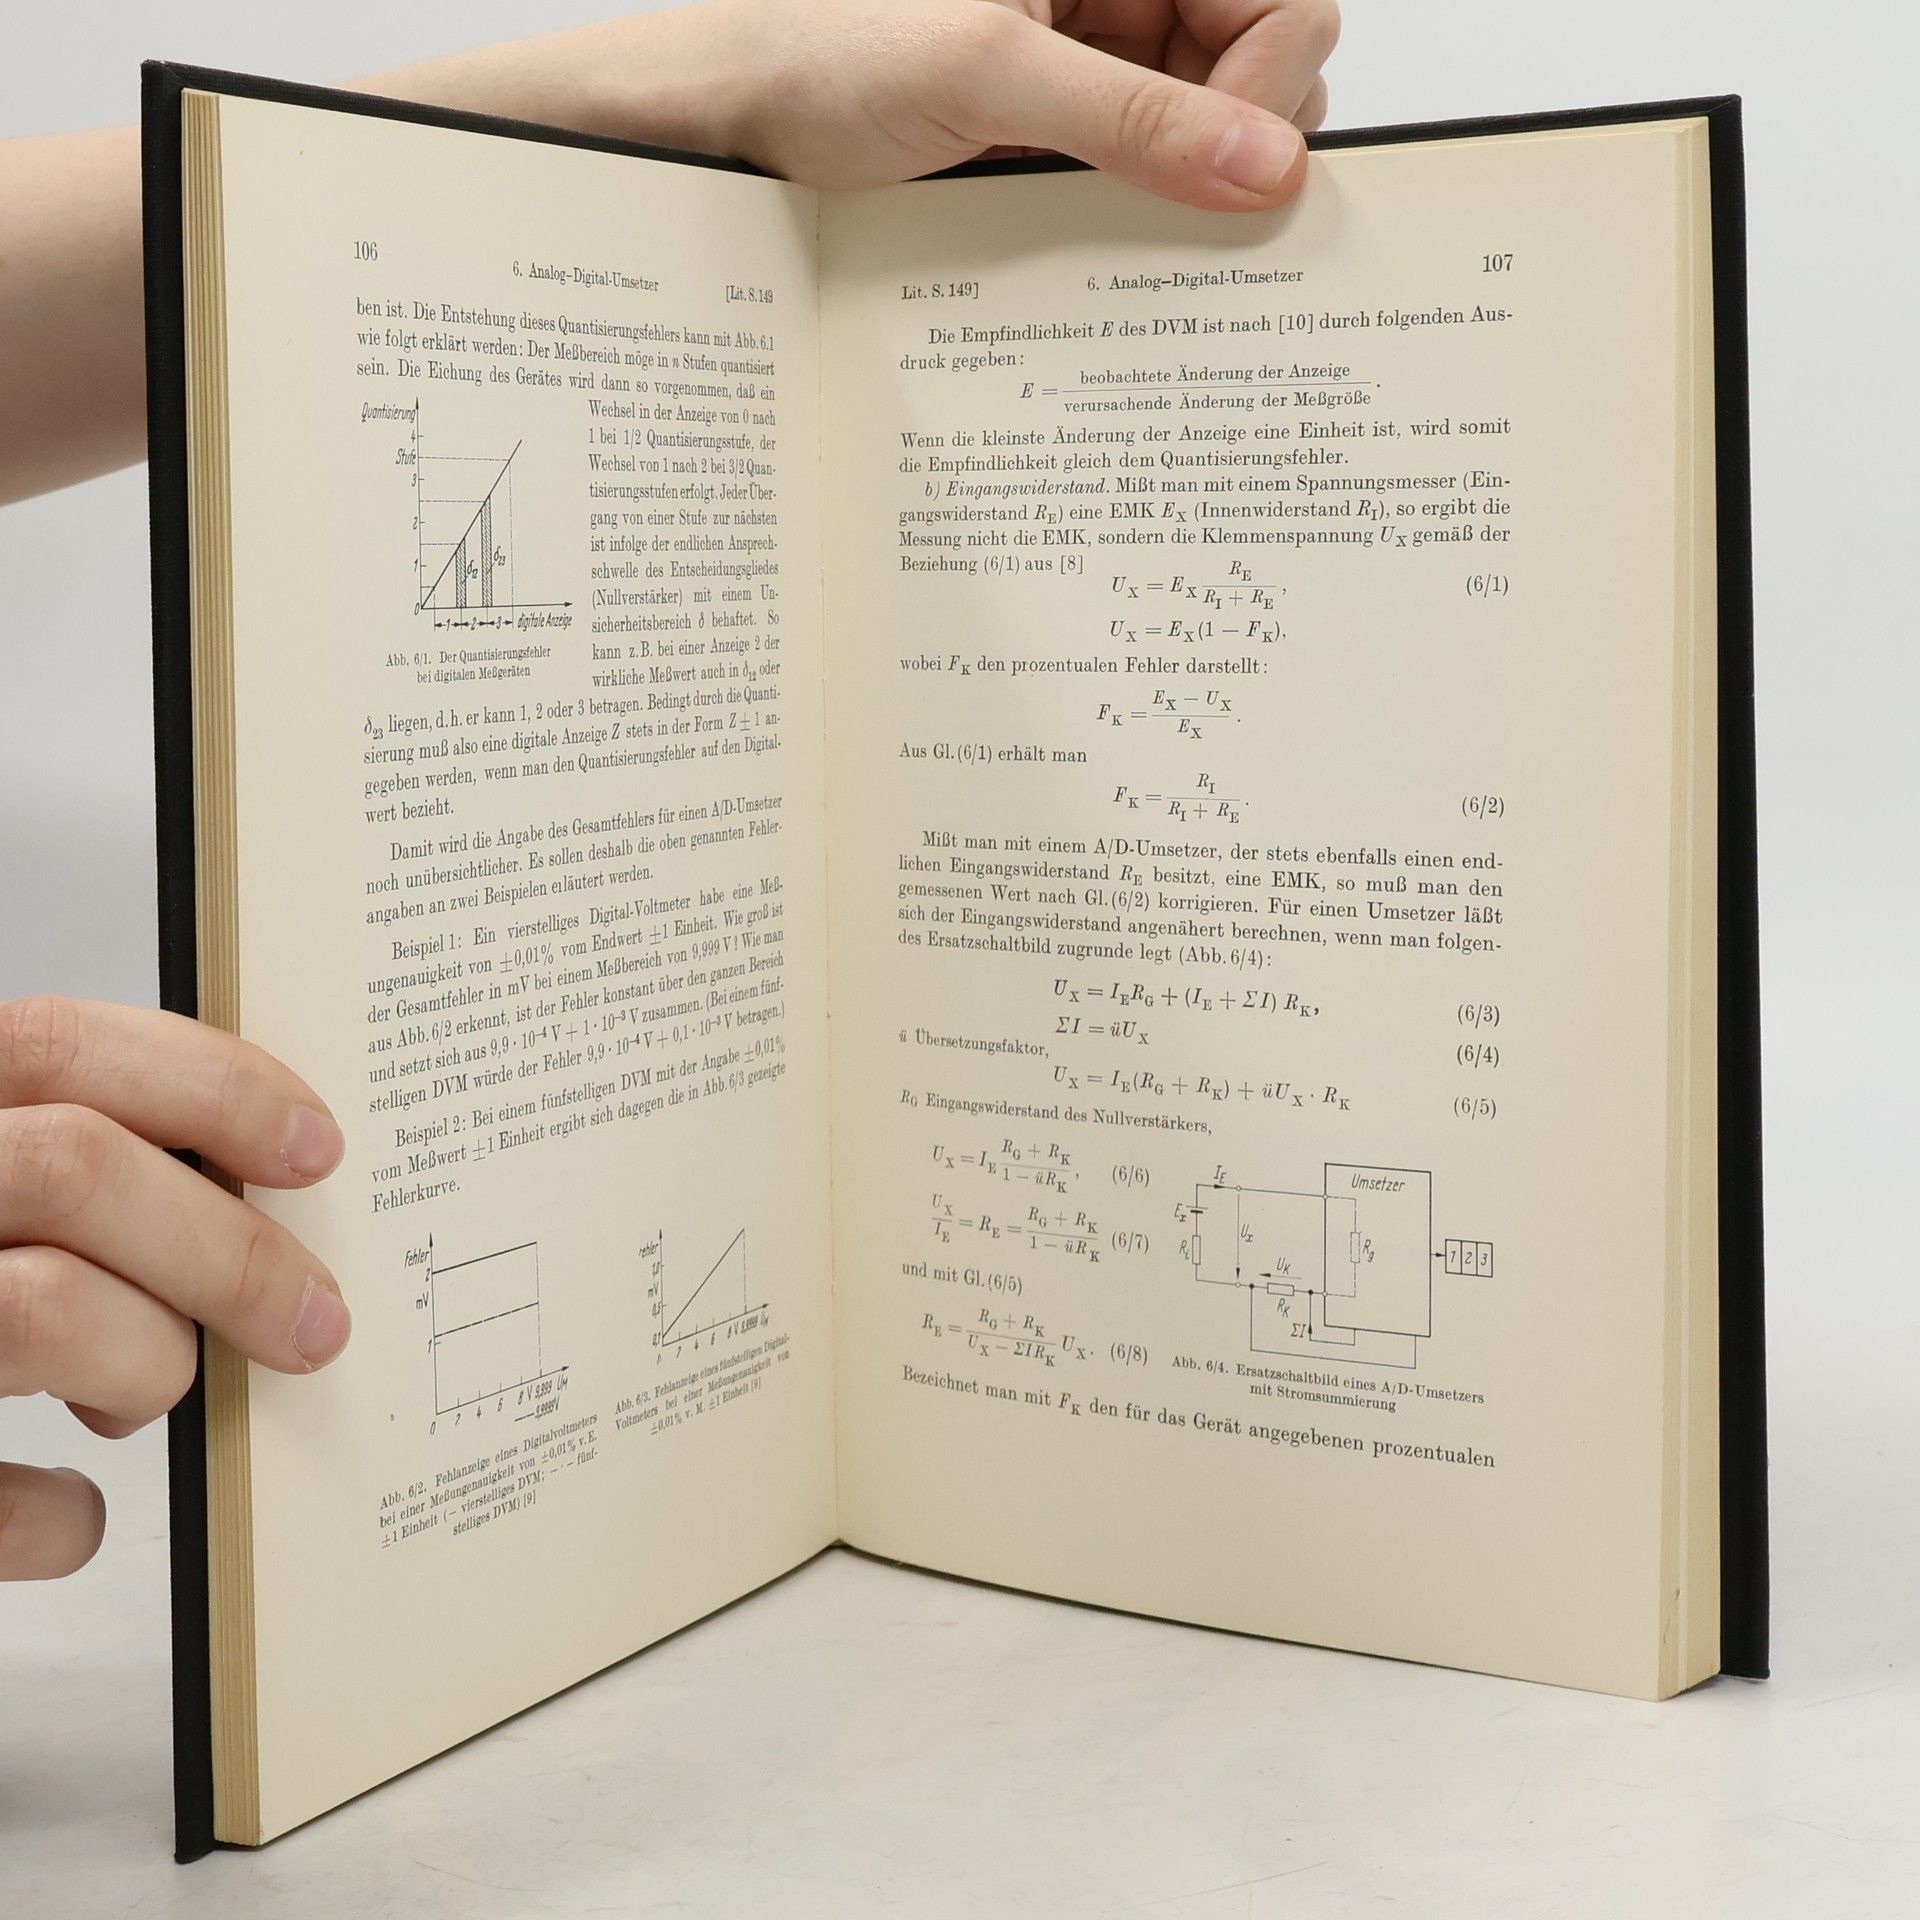 106
6. Analog–Digital-Umsetzer
[Lit. S. 149
ben ist. Die Entstehung dieses Quantisierungsfehlers kann mit Abb. 6.1
wie folgt erklärt werden: Der Meßbereich möge in n Stufen quantisiert
sein. Die Eichung des Gerätes wird dann so vorgenommen, daß ein
Wechsel in der Anzeige von 0 nach
1 bei 1/2 Quantisierungsstufe, der
Wechsel von 1 nach 2 bei 3/2 Quan-
tisierungsstufen erfolgt. Jeder Über-
gang von einer Stufe zur nächsten
ist infolge der endlichen Ansprech-
schwelle des Entscheidungsgliedes
(Nullverstärker) mit einem Un-
sicherheitsbereich δ behaftet. So
kann z.B. bei einer Anzeige 2 der
wirkliche Meßwert auch in δ₁₂ oder
Quantisierung
4
Stufe
3
2
1
0
δ₁₂
δ₂₃
1 2 3 digitale Anzeige
Abb. 6/1. Der Quantisierungsfehler
bei digitalen Meßgeräten
δ₂₃ liegen, d.h. er kann 1, 2 oder 3 betragen. Bedingt durch die Quanti-
sierung muß also eine digitale Anzeige Z stets in der Form Z ± 1 an-
gegeben werden, wenn man den Quantisierungsfehler auf den Digital-
wert bezieht.
Damit wird die Angabe des Gesamtfehlers für einen A/D-Umsetzer
noch unübersichtlicher. Es sollen deshalb die oben genannten Fehler-
angaben an zwei Beispielen erläutert werden.
Beispiel 1: Ein vierstelliges Digital-Voltmeter habe eine Meß-
ungenauigkeit von ±0,01% vom Endwert ±1 Einheit. Wie groß ist
der Gesamtfehler in mV bei einem Meßbereich von 9,999 V? Wie man
aus Abb. 6/2 erkennt, ist der Fehler konstant über den ganzen Bereich
und setzt sich aus 9,9 · 10⁻⁴ V + 1 · 10⁻³ V zusammen. (Bei einem fünf-
stelligen DVM würde der Fehler 9,9 · 10⁻⁴ V + 0,1 · 10⁻³ V betragen.)
Beispiel 2: Bei einem fünfstelligen DVM mit der Angabe ±0,01%
vom Meßwert ±1 Einheit ergibt sich dagegen die in Abb. 6/3 gezeigte
Fehlerkurve.
Fehler
2
mV
1
0 2 4 6 8 V 9,999 U_M
9,9999V
Abb. 6/2. Fehlanzeige eines Digitalvoltmeters
bei einer Meßungenauigkeit von ±0,01% v. E.
±1 Einheit (– vierstelliges DVM; – · – fünf-
stelliges DVM) [9]
mV
0,1
4 6 8 V 9,9999 U_M
Abb. 6/3. Fehlanzeige eines fünfstelligen Digital-
Voltmeters bei einer Meßungenauigkeit von
±0,01% v. M. ±1 Einheit [9]
Lit. S. 149]
6. Analog–Digital-Umsetzer
107
Die Empfindlichkeit E des DVM ist nach [10] durch folgenden Aus-
druck gegeben:
E = beobachtete Änderung der Anzeige / verursachende Änderung der Meßgröße .
Wenn die kleinste Änderung der Anzeige eine Einheit ist, wird somit
die Empfindlichkeit gleich dem Quantisierungsfehler.
b) Eingangswiderstand. Mißt man mit einem Spannungsmesser (Ein-
gangswiderstand R_E) eine EMK E_X (Innenwiderstand R_I), so ergibt die
Messung nicht die EMK, sondern die Klemmenspannung U_X gemäß der
Beziehung (6/1) aus [8]
U_X = E_X R_E / (R_I + R_E) , (6/1)
U_X = E_X(1 − F_K),
wobei F_K den prozentualen Fehler darstellt:
F_K = (E_X − U_X) / E_X .
Aus Gl. (6/1) erhält man
F_K = R_I / (R_I + R_E) . (6/2)
Mißt man mit einem A/D-Umsetzer, der stets ebenfalls einen end-
lichen Eingangswiderstand R_E besitzt, eine EMK, so muß man den
gemessenen Wert nach Gl. (6/2) korrigieren. Für einen Umsetzer läßt
sich der Eingangswiderstand angenähert berechnen, wenn man folgen-
des Ersatzschaltbild zugrunde legt (Abb. 6/4):
U_X = I_E R_G + (I_E + ΣI) R_K, (6/3)
ΣI = üU_X (6/4)
ü Übersetzungsfaktor,
U_X = I_E(R_G + R_K) + üU_X · R_K (6/5)
R_G Eingangswiderstand des Nullverstärkers,
U_X = I_E (R_G + R_K) / (1 − üR_K) , (6/6)
U_X / I_E = R_E = (R_G + R_K) / (1 − üR_K) (6/7)
und mit Gl. (6/5)
R_E = (R_G + R_K) / (U_X − ΣIR_K) U_X . (6/8)
I_E
Umsetzer
E_x
U_x
R_i
R_g
1 2 3
U_K
R_K
ΣI
Abb. 6/4. Ersatzschaltbild eines A/D-Umsetzers
mit Stromsummierung
Bezeichnet man mit F_K den für das Gerät angegebenen prozentualen